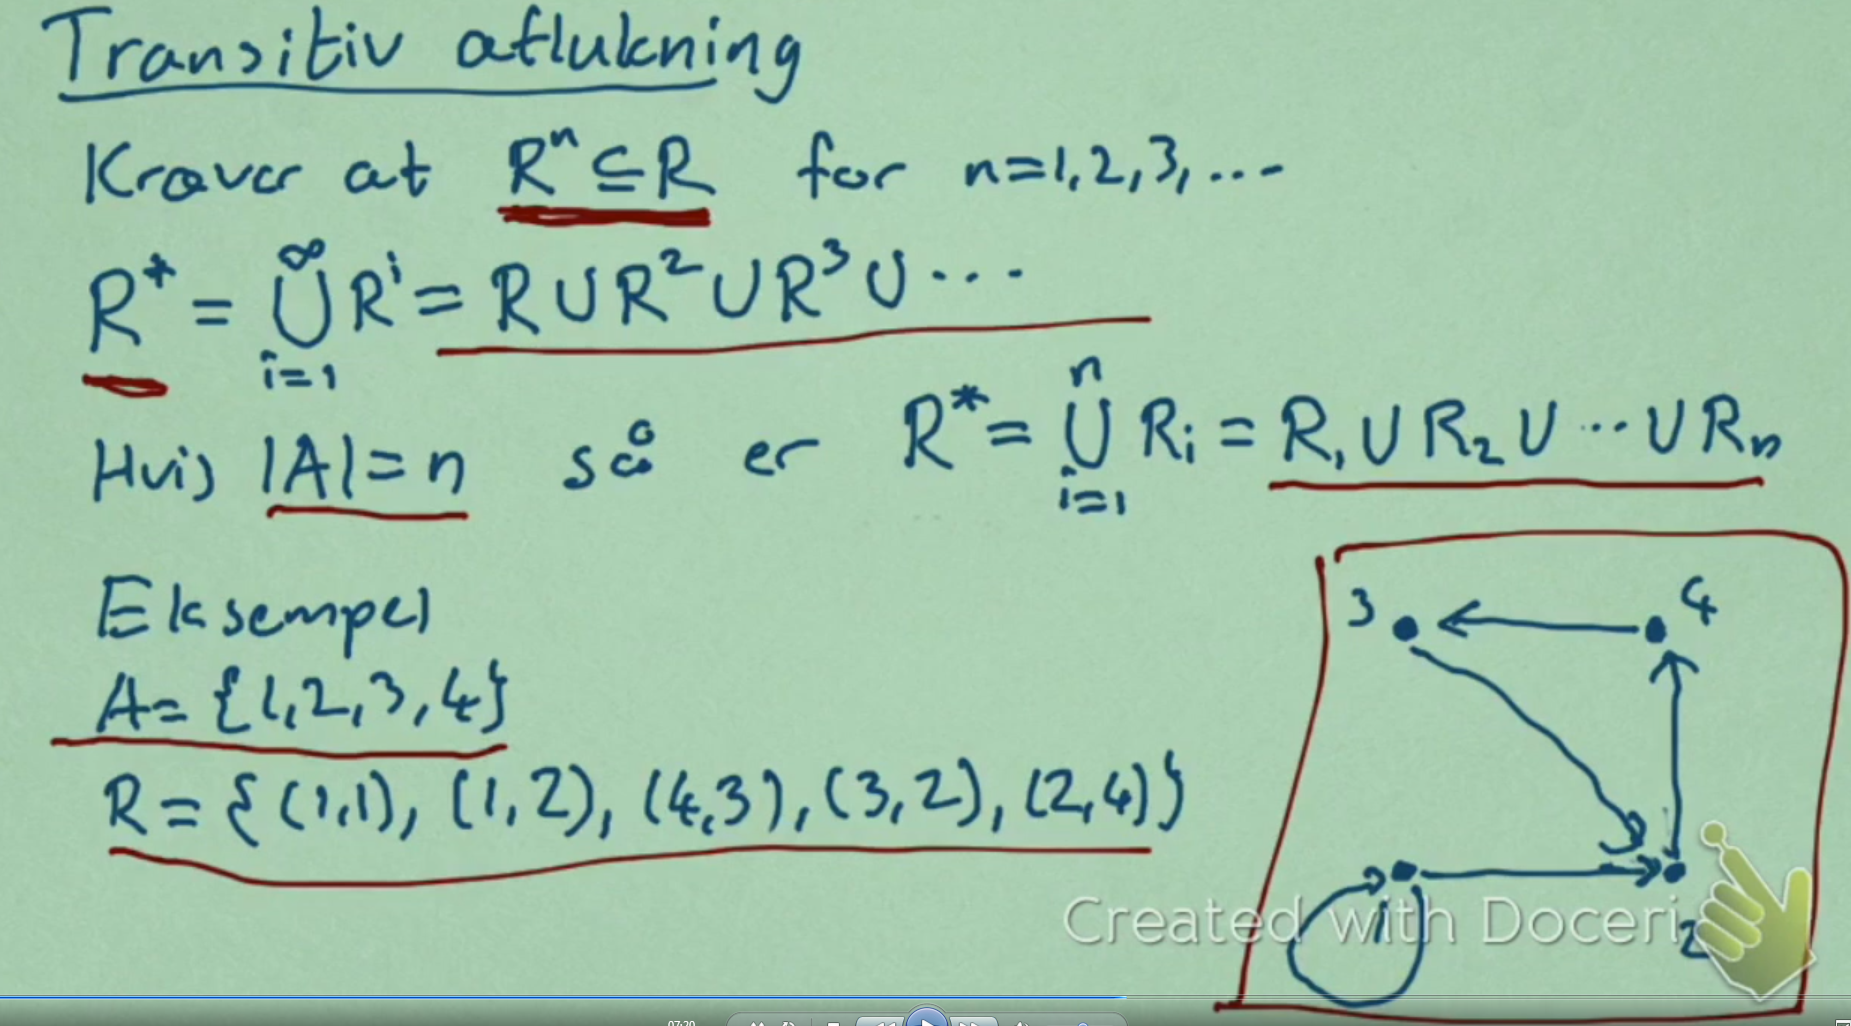 Transitiv aflukning
Kræver at Rⁿ ⊆ R for n=1,2,3,...
R* = ⋃_{i=1}^{∞} Rⁱ = R ∪ R² ∪ R³ ∪ ...
Hvis |A| = n så er R* = ⋃_{i=1}^{n} Rᵢ = R₁ ∪ R₂ ∪ ... ∪ Rₙ
Eksempel
A = {1,2,3,4}
R = {(1,1), (1,2), (4,3), (3,2), (2,4)}
3 4
1 2
Created with Doceri
07:20